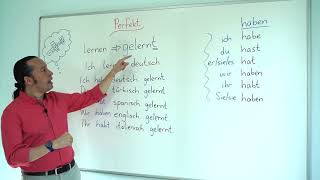 Perfekt
lernen ⇒ gelernt
Ich lerne deutsch
Ich habe deutsch gelernt.
türkisch gelernt.
hat spanisch gelernt.
Wir haben englisch gelernt.
Ihr habt italienisch gelernt.
haben
ich habe
du hast
er/sie/es hat
wir haben
ihr habt
Sie/sie haben